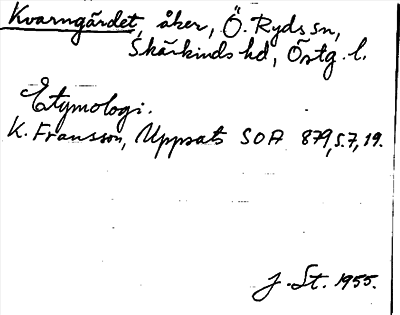 Kvarngärdet, åker, Ö. Ryds sn,
Skärkinds hd, Östg. l.
Etymologi.
K. Fransson, Uppsats SOA 879, s. 7, 19.
J. St. 1955.